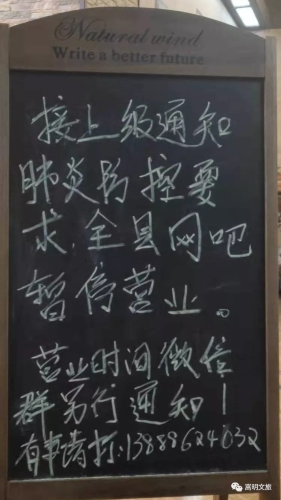 Natural wind
Write a better future
接上级通知
肺炎防控要
求,全县网吧
暂停营业。
营业时间微信
群另行通知！
有事请打:13888624632
嵩明文旅